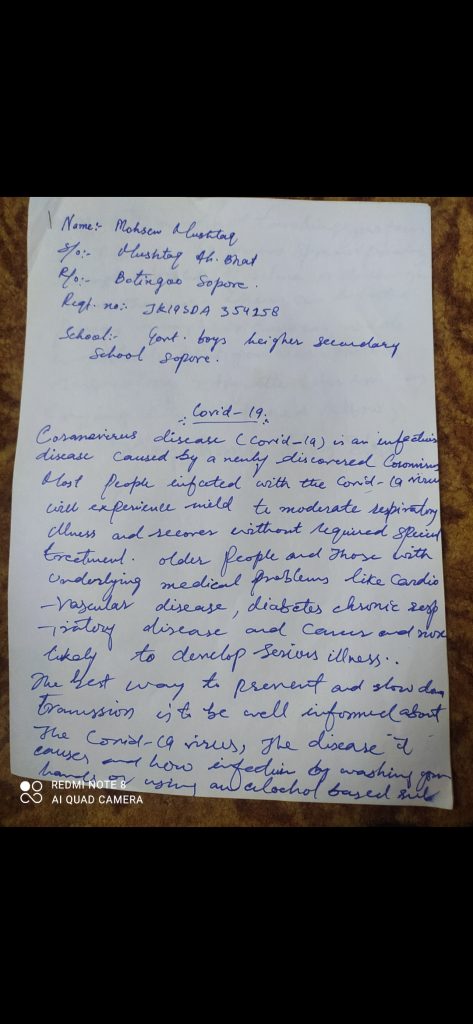 Name:- Mohsen Mushtaq
S/o:- Mushtaq Ah. Bhat
R/o:- Botingoo Sopore.
Regt. no:- JK19SDA 354158
School:- Govt. boys heigher secondary
School Sopore.
Covid-19.
Coronavirus disease (Covid-19) is an infectious
disease caused by a newly discovered Coronvirus
Most People infected with the Covid-19 virus
will experience mild to moderate respiratory
illness and recover without required special
treetment. older People and Those with
underlying medical problems like Cardio
-vascular disease, diabetes chronic resp
-iratory disease and Cancer and more
likely to develop Serious illness..
The best way to prevent and slow down
tranmssion is to be well informed about
The Covid-19 virus, The disease it
causes and how infection by washing your
hands or using an alochol based rub
REDMI NOTE 8
AI QUAD CAMERA